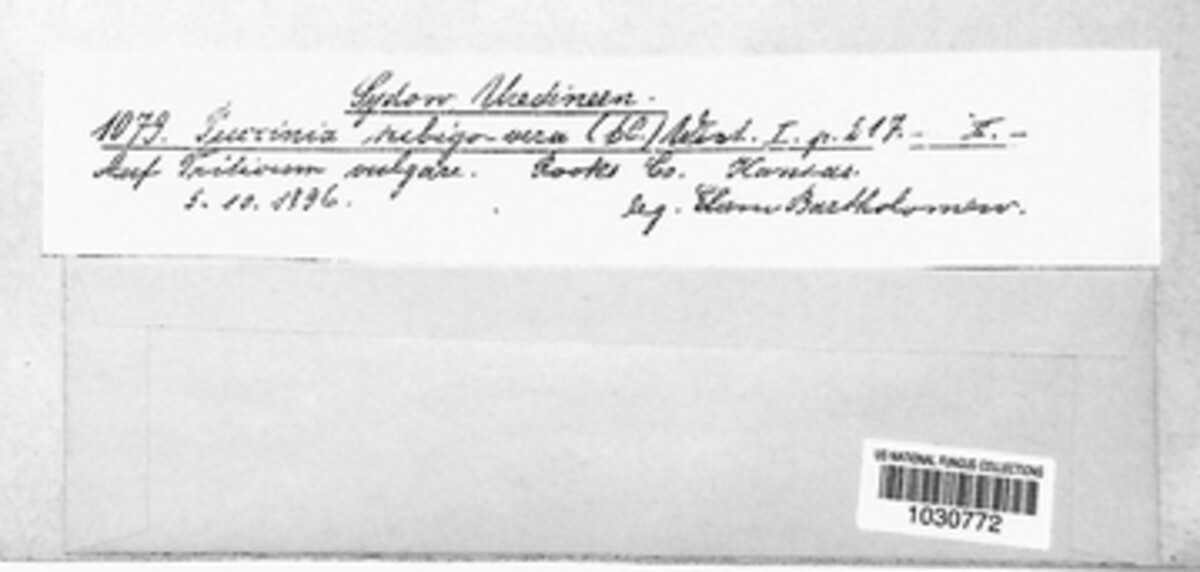 Sydow Uredineen.
1079. Puccinia rubigo-vera (DC.) Wint. I. p. 217. - II. -
Auf Triticum vulgare. Rooks Co. Kansas.
5. 10. 1896. leg. Elam Bartholomew.
US NATIONAL FUNGUS COLLECTIONS
1030772